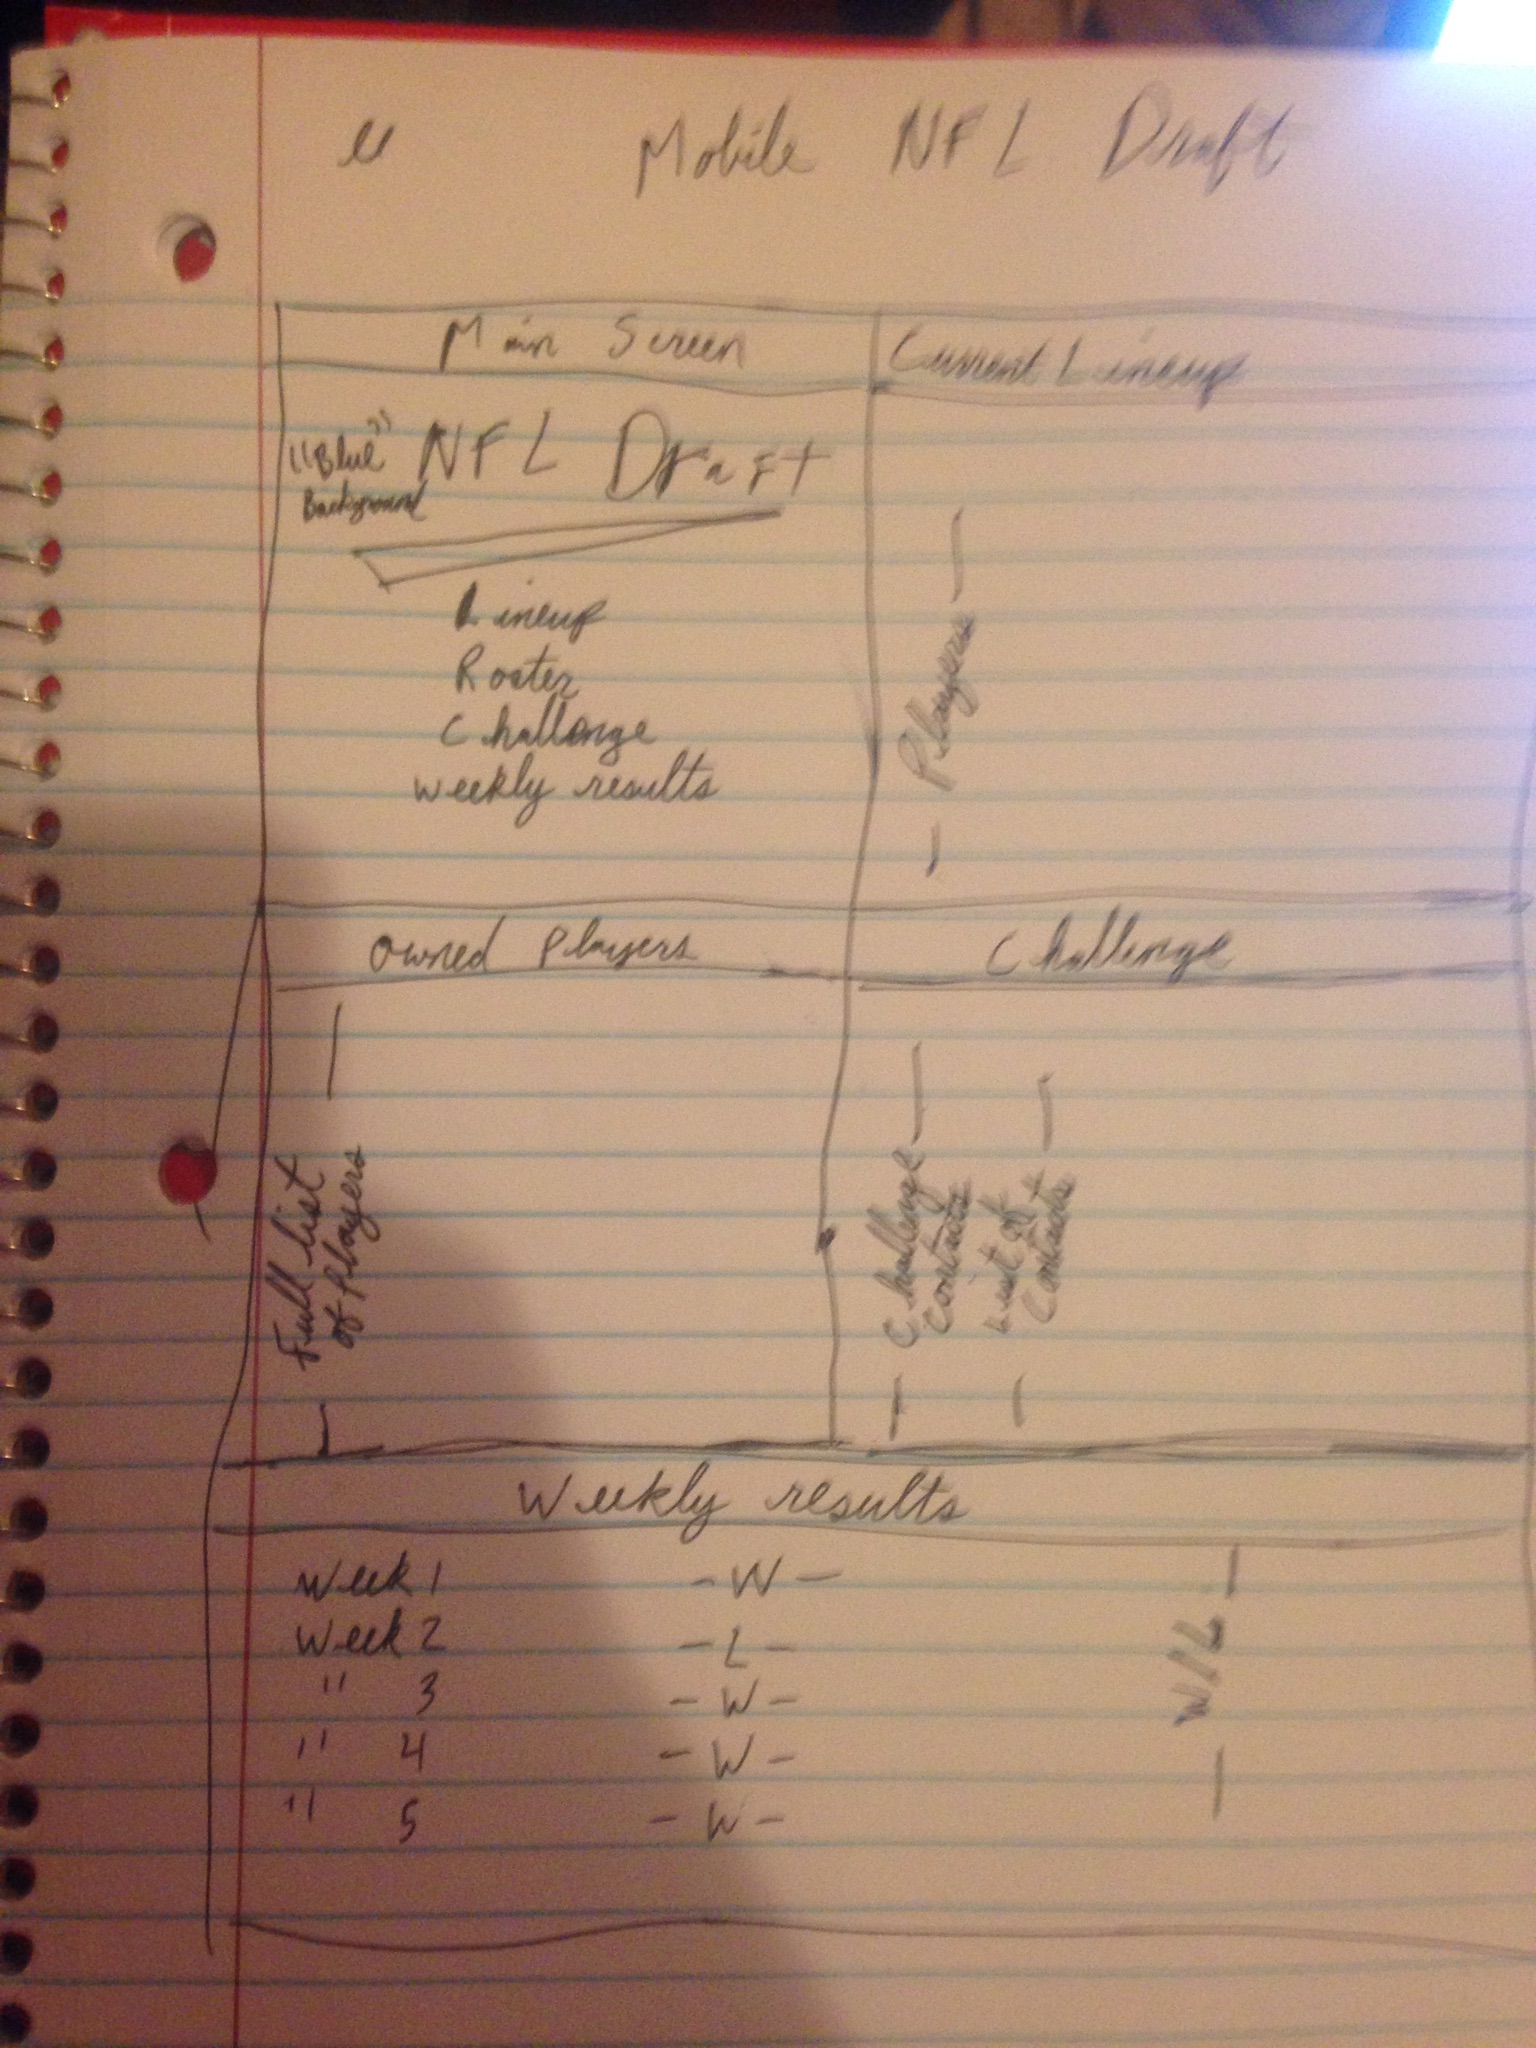 "
Mobile NFL Draft
Main Screen
"Blue"
Background
NFL Draft
Lineup
Roster
Challenge
Weekly results
Current Lineup
- Players -
Owned Players
- Full list
of Players -
Challenge
- Challenge -
contacts
- List of
Contacts -
Weekly results
Week 1 - W -
Week 2 - L -
" 3 - W -
" 4 - W -
" 5 - W -
- W/L -